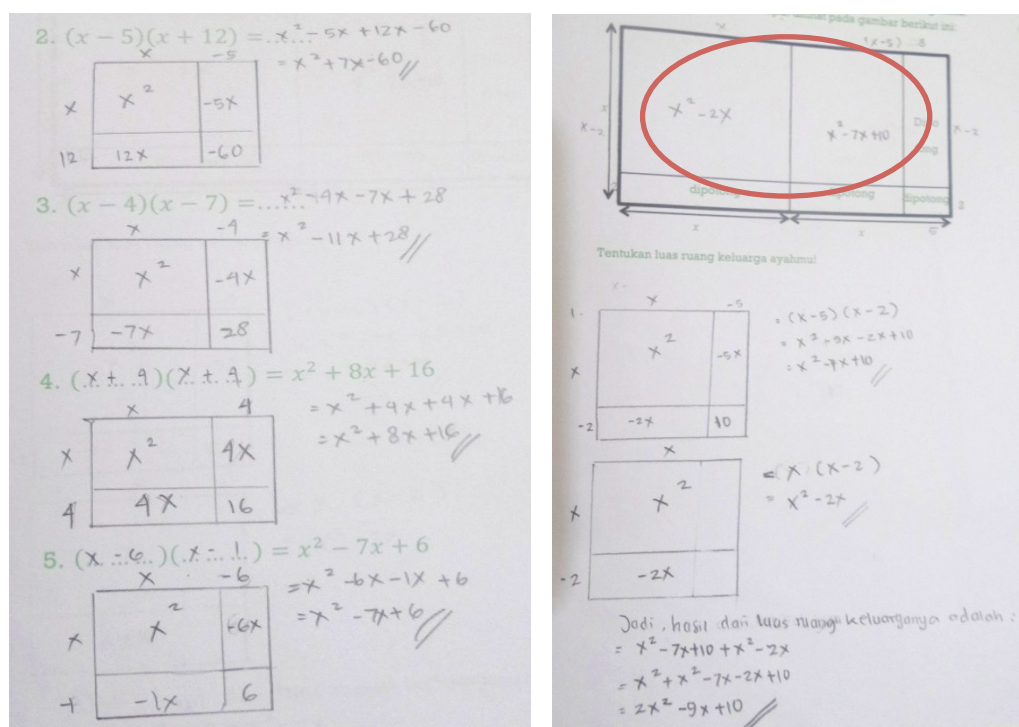 2. (x − 5)(x + 12) = ...... x² − 5x + 12x − 60
= x² + 7x − 60
x −5
x x² −5x
12 12x −60
3. (x − 4)(x − 7) = ...... x² − 4x − 7x + 28
= x² − 11x + 28
x −4
x x² −4x
−7 −7x 28
4. (.x + .. 4)(x .. + .. 4) = x² + 8x + 16
= x² + 4x + 4x + 16
= x² + 8x + 16
x 4
x x² 4x
4 4x 16
5. (x ... − 6 ...)(.x − .. 1 ..) = x² − 7x + 6
= x² − 6x − 1x + 6
= x² − 7x + 6
x −6
x x² −6x
−1x 6
pada gambar berikut ini:
x (x−5) 5
x
x−2 x² − 2x x² − 7x + 10 x−2
dipotong dipotong 2
x x 5
Tentukan luas ruang keluarga ayahmu!
1. x −5
x x² −5x
−2 −2x 10
= (x−5) (x−2)
= x² − 5x − 2x + 10
= x² − 7x + 10
x
x x²
−2 −2x
= x (x−2)
= x² − 2x
Jadi, hasil dari luas ruang keluarganya adalah :
= x² − 7x + 10 + x² − 2x
= x² + x² − 7x − 2x + 10
= 2x² − 9x + 10